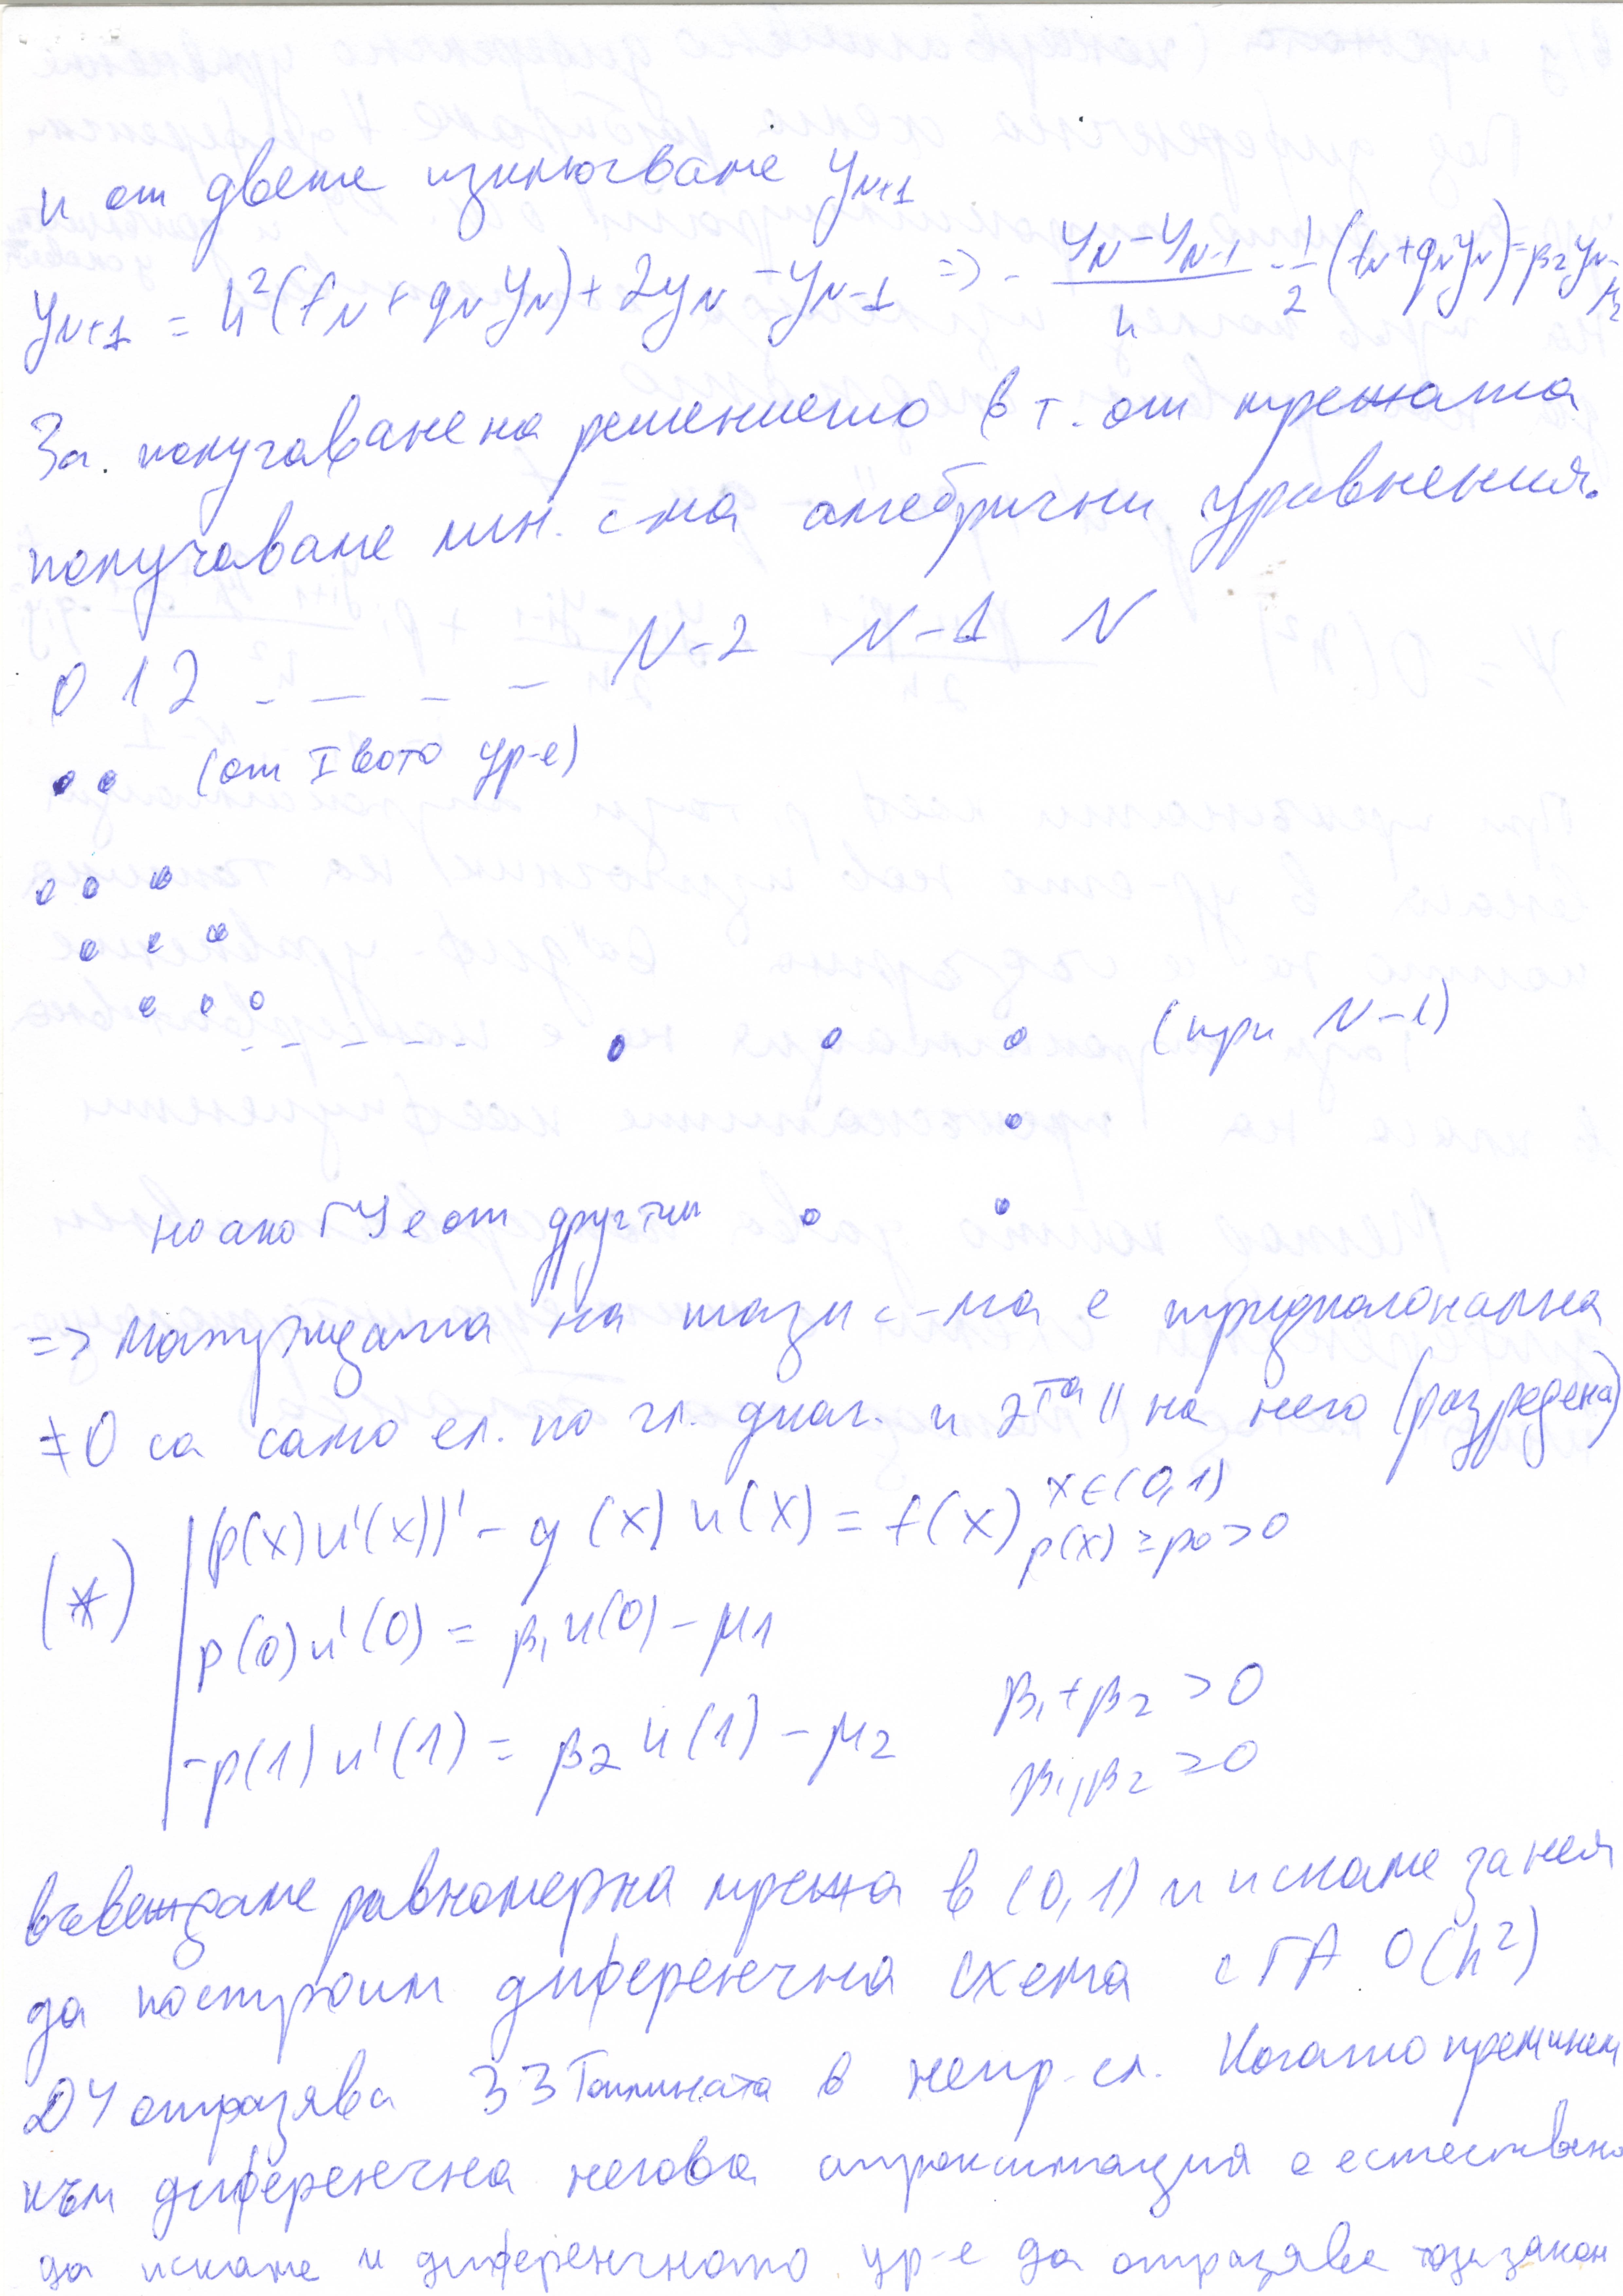 и от двете изключваме y_{N+1}
y_{N+1} = h²(f_N + q_N y_N) + 2y_N - y_{N-1} => - \frac{y_N - y_{N-1}}{h} - \frac{1}{2}(f_N + q_N y_N) = β₂ y_N - μ₂
За получаване на решението в т. от мрежата
получаваме лин. с-ма алгебрични уравнения.
0 1 2 _ _ _ _ N-2 N-1 N
(от I вото ур-е)
(при N-1)
но ако ГУ е от друг тип
=> матрицата на тази с-ма е тридиагонална
≠0 са само ел. по гл. диаг. и 2та || на него (разредена)
(*) (p(x)u'(x))' - q(x)u(x) = f(x) x∈(0,1)
p(x) ≥ p₀ > 0
p(0)u'(0) = β₁u(0) - μ₁
-p(1)u'(1) = β₂u(1) - μ₂
β₁+β₂ > 0
β₁,β₂ ≥ 0
въвеждаме равномерна мрежа в (0,1) и искаме за нея
да построим диференчна схема с ГА O(h²)
ДУ отразява ЗЗТоплината в непр. сл. Когато преминем
към диференчна негова апроксимация е естествено
да искаме и диференчното ур-е да отразява този закон